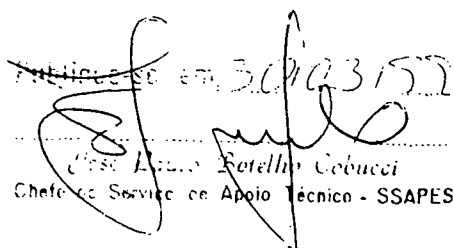 Publique-se em 30/03/
José Botelho Cobucci
Chefe do Serviço de Apoio Técnico - SSAPES